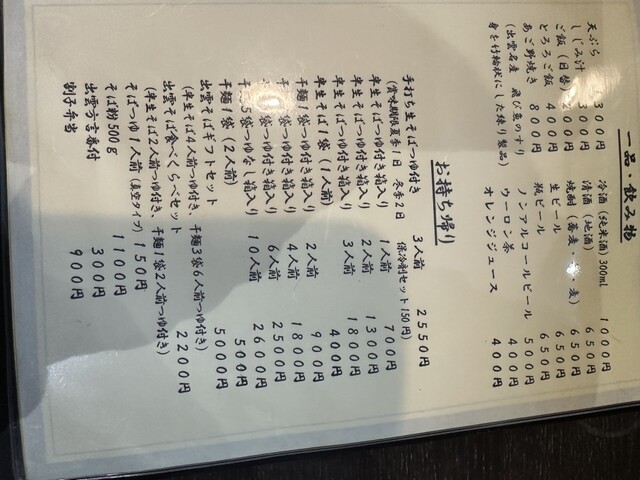 一品・飲み物
天ぷら 300円
しじみ汁 300円
ご飯(日替) 200円
とろろご飯 400円
あご野焼き 800円
(出雲名産 飛び魚のすり
身を竹輪状にした練り製品)
冷酒(純米酒)300mL 1000円
清酒(地酒) 650円
焼酎(蕎麦・ ・麦) 650円
生ビール 650円
瓶ビール 650円
ノンアルコールビール 500円
ウーロン茶 400円
オレンジジュース 400円
お持ち帰り
手打ち生そばつゆ付き 3人前 2550円
(賞味期限夏季1日 冬季2日 保冷剤セット150円)
半生そばつゆ付き箱入り 1人前 700円
半生そばつゆ付き箱入り 2人前 1300円
半生そばつゆ付き箱入り 3人前 1800円
半生そば1袋(1人前) 400円
干麺1袋つゆ付き箱入り 2人前 900円
干 袋つゆ付き箱入り 4人前 1800円
袋つゆ付き箱入り 6人前 2500円
干 5袋つゆなし箱入り 10人前 2600円
干麺1袋(2人前) 500円
出雲そばギフトセット 5000円
(半生そば4人前つゆ付き、干麺3袋6人前つゆ付き)
出雲そば食べくらべセット 2200円
(半生そば2人前つゆ付き、干麺1袋2人前つゆ付き)
そばつゆ1人前(真空タイプ) 150円
そば粉500g 1100円
出雲方言番付 300円
割子弁当 900円